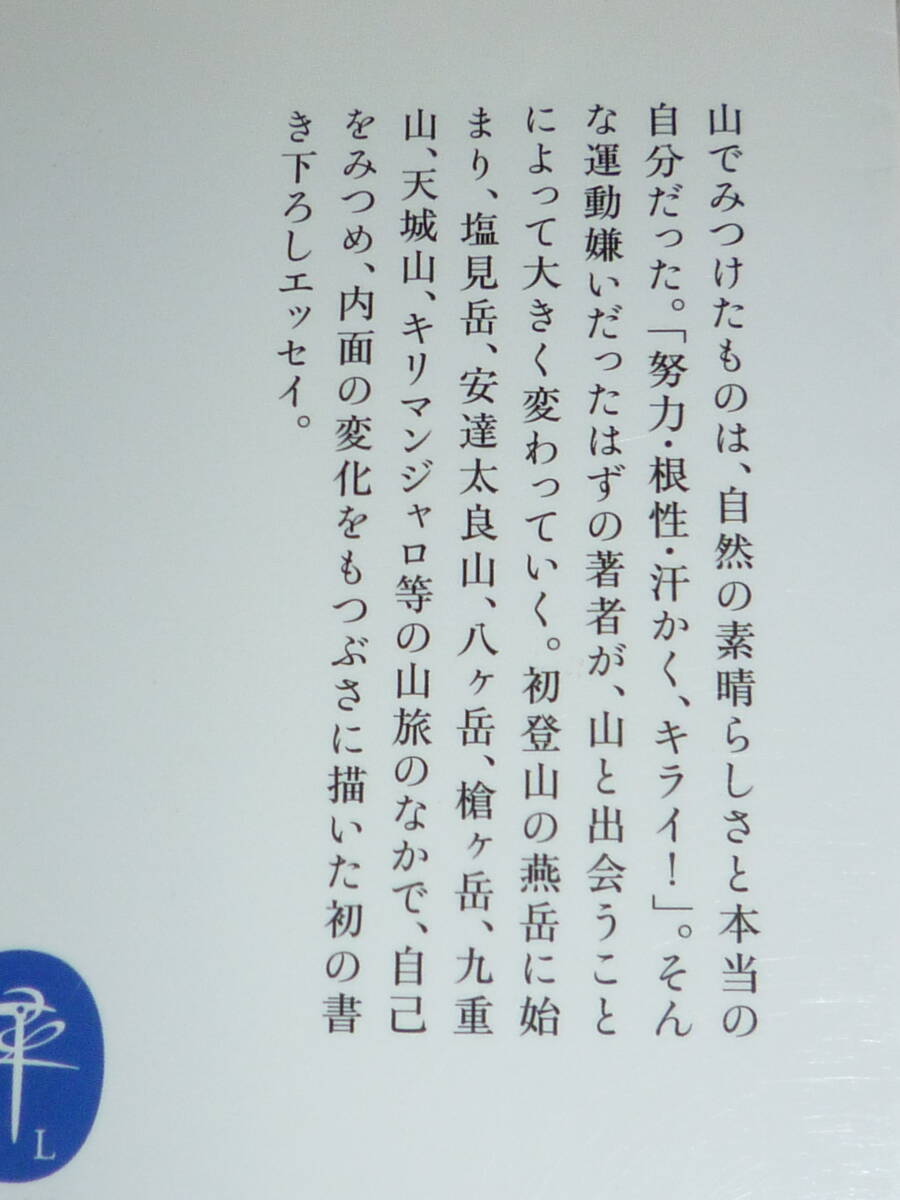 山でみつけたものは、自然の素晴らしさと本当の
自分だった。「努力・根性・汗かく、キライ！」。そん
な運動嫌いだったはずの著者が、山と出会うこと
によって大きく変わっていく。初登山の燕岳に始
まり、塩見岳、安達太良山、八ヶ岳、槍ヶ岳、九重
山、天城山、キリマンジャロ等の山旅のなかで、自己
をみつめ、内面の変化をもつぶさに描いた初の書
き下ろしエッセイ。
L